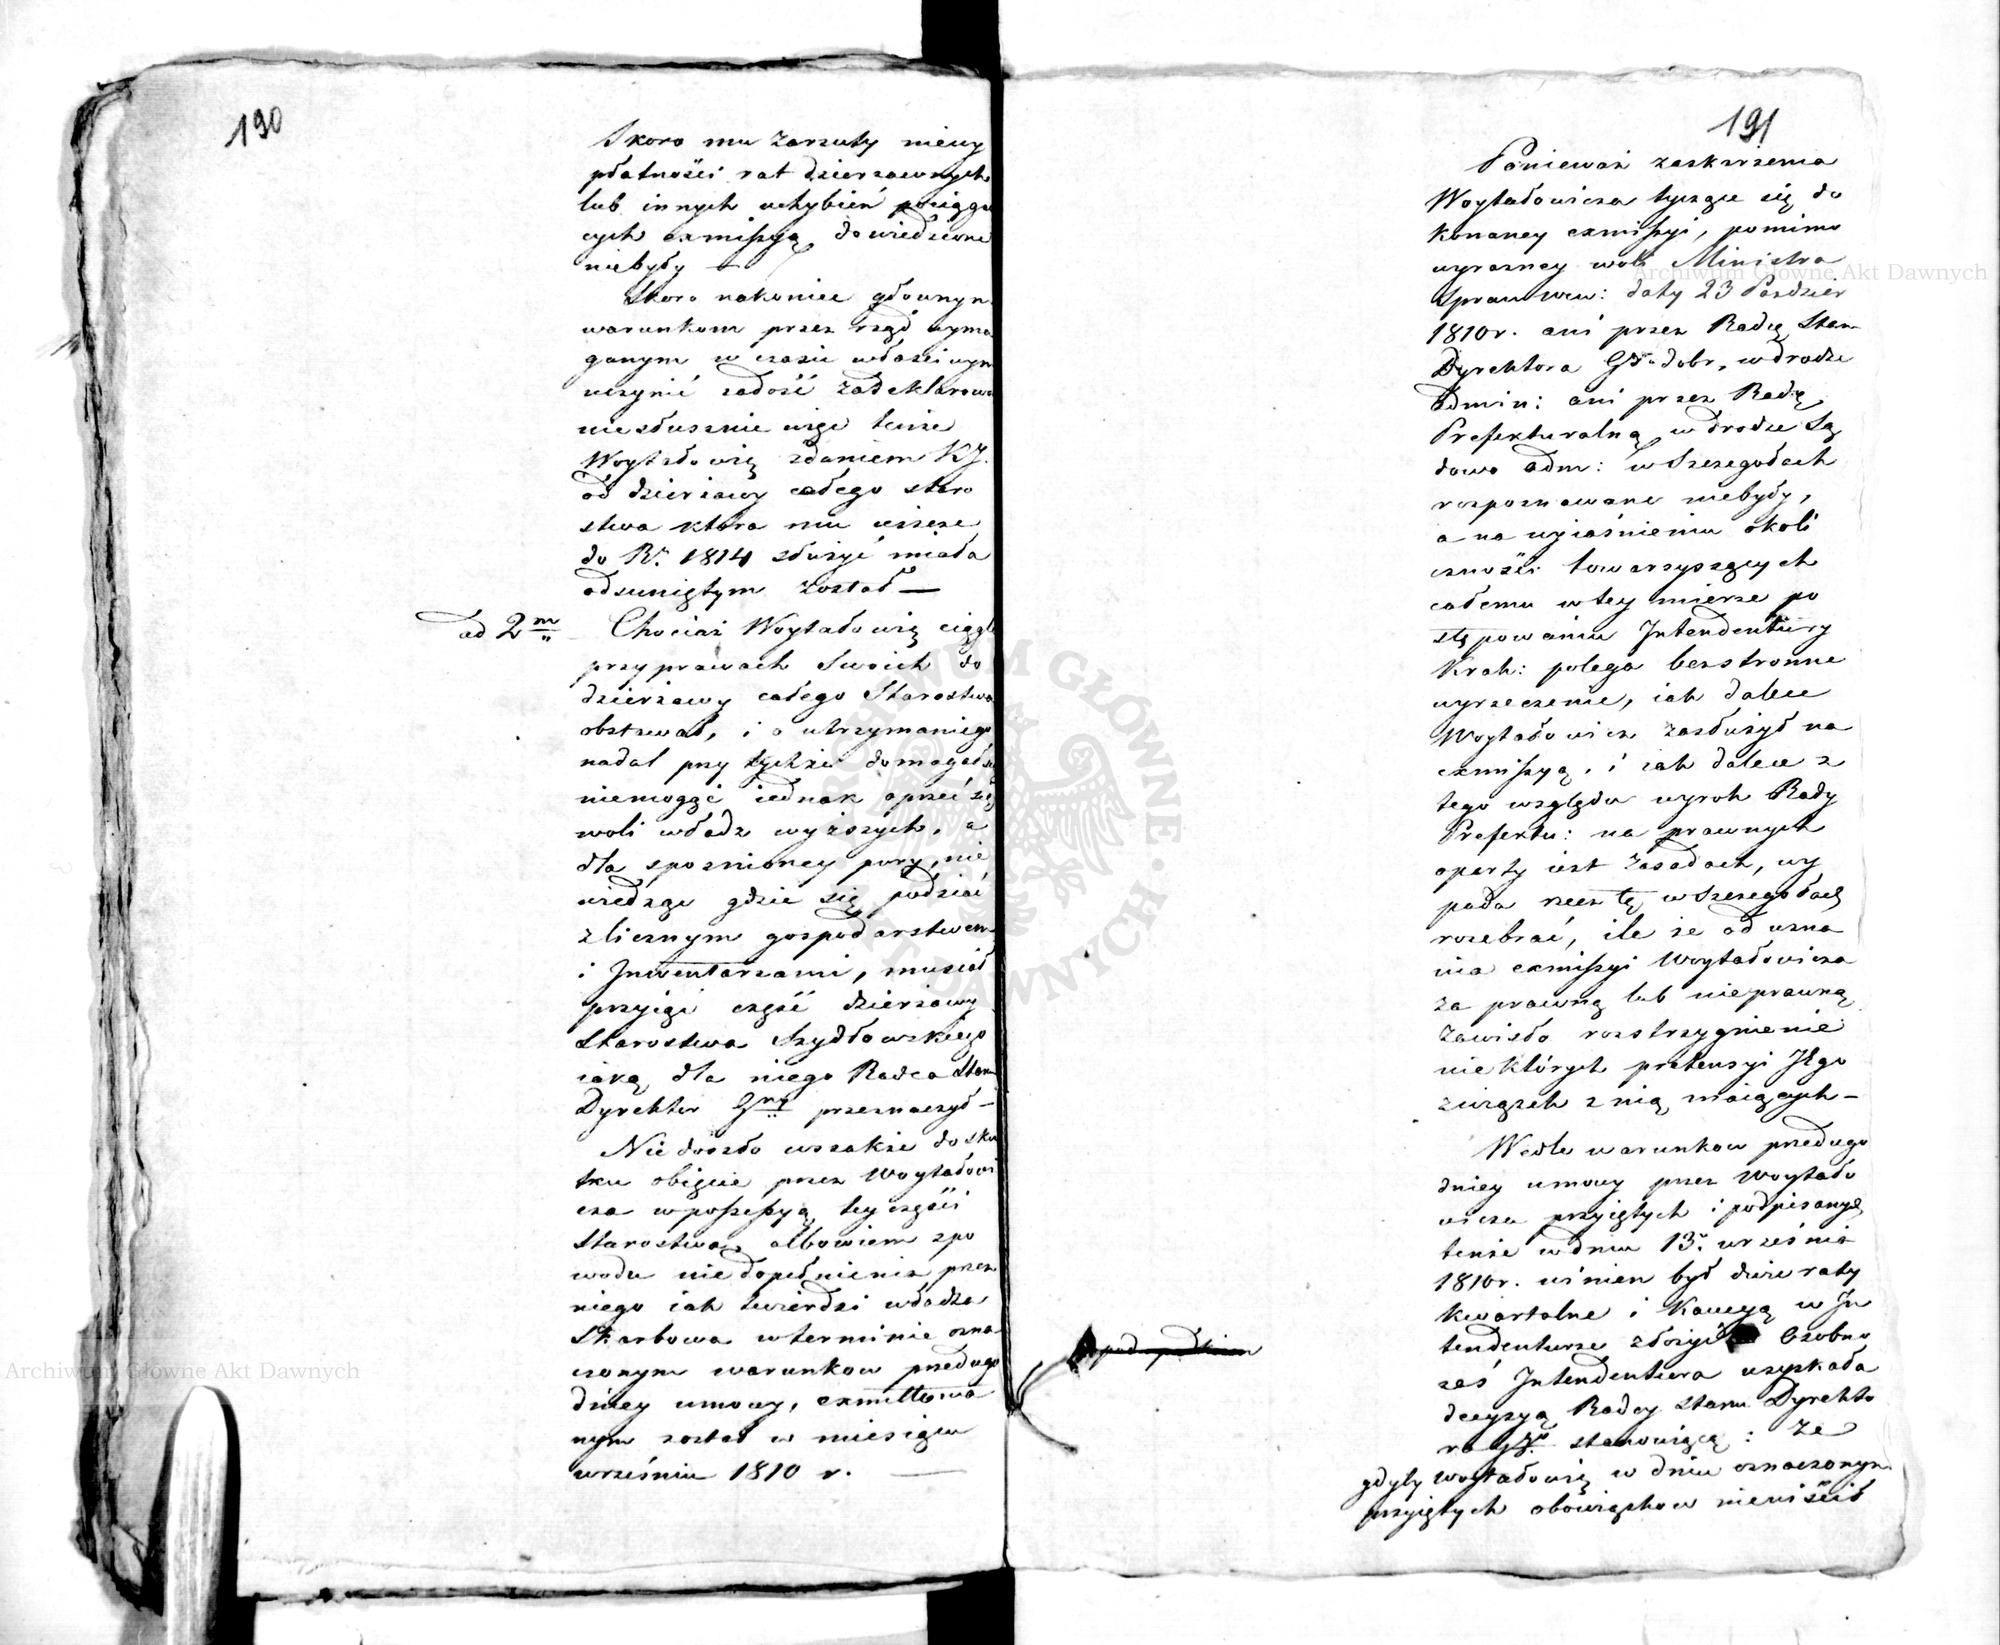 190
Skoro mu zarzuty niewy
płatności rat dzierzawnych
lub innych uchybień pociąga
cych exmissyą dowiedzione
niebyły —
Skoro nakoniec głownym
warunkom przez rząd wyma
ganym w czasie właściwym
uczynić zadość zadeklarowa
niesłusznie więc tenże
Woytałowicz zdaniem KJ.
od dzierżawy całego staro
stwa ktora mu ieszcze
do Rn. 1814 służyć miała
odsuniętym został —
ad 2m Chociaż Woytałowicz ciągle
przy prawach Swoich do
dzierżawy całego Starostwa
obstawał, i o utrzymaniego
nadal przy tychże domagał się
niemogąc iednak oprzeć się
woli władz wyższych, a
dla spoznioney pory, nie
wiedząc gdzie się podziać
z licznym gospodarstwem
i Inwentarzami, musiał
przyiąć część dzierżawy
Starostwa Szydłowskiego
iaką dla niego Radca Stanu
Dyrektor Gny przeznaczył —
Nie doszło wszakże do sku
tku obięcie przez Woytałowi
cza w possessyą tey części
Starostwa, albowiem z po
wodu niedopełnienia przez
niego iak twierdzi władza
Skarbowa w terminie ozna
czonym warunkow przedugo
dniey umowy, exmittowa
nym został w miesiącu
wrześniu 1810 r. —
191
Ponieważ zaskarżenia
Woytałowicza tyczące się do
konaney exmissyi, pomimo
wyrazney woli Ministra
Spraw wew: daty 23 Pazdzier
1810r. ani przez Radcę Stanu
Dyrektora Gn dobr, w drodze
Admin: ani przez Radę
Prefekturalną w drodze Są
dowo Adm: w Szczegołach
rozpoznawane niebyły,
a na wyiaśnieniu okoli
czności towarzyszących
całemu w tey mierze po
stępowaniu Intendentury
Krak: polega bezstronne
wyrzeczenie, iak dalece
Woytałowicz zasłużył na
exmissyą, i iak dalece z
tego względu wyrok Rady
Prefektu: na prawnych
oparty iest zasadach, wy
pada rzecz tę w Szczegołach
rozebrać, ile że od uzna
nia exmissyi Woytałowicza
za prawną lub nieprawną
zawisło rozstrzygnienie
niektórych pretensyi Jego
związek z nią maiących —
Wedle warunkow przedugo
dniey umowy przez Woytało
wicza przyiętych i podpisanych
tenże w dniu 13. września
1810r. winien był dwie raty
kwartalne i Kaucyą w In
tendenturze złożyć Osobno
zaś Intendentura uzyskała
decyzyą Radcy Stanu Dyrekto
ra Gn. stanowiącą: że
gdyby Woytałowicz w dniu oznaczonym
przyiętych obowiązkow nieuiścił